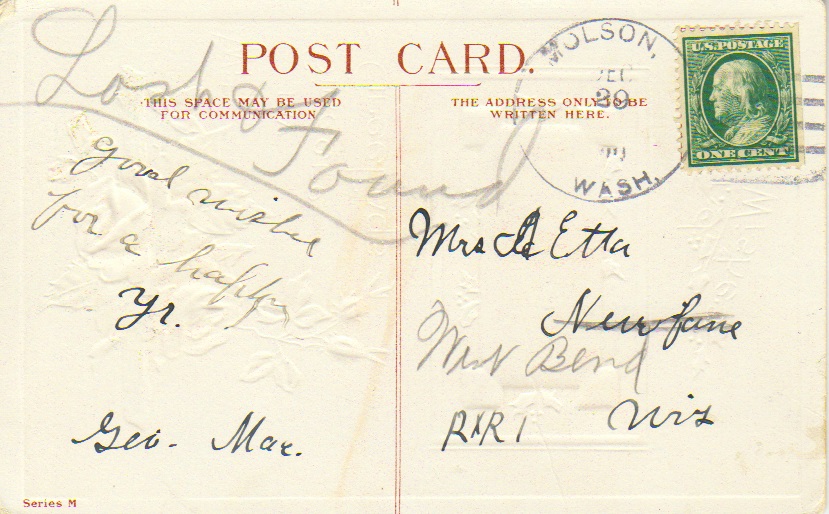 POST CARD.
THIS SPACE MAY BE USED
FOR COMMUNICATION
THE ADDRESS ONLY TO BE
WRITTEN HERE.
MOLSON,
DEC
29
WASH.
U.S. POSTAGE
ONE CENT
Lost & Found
Good wishes
for a happy
Yr.
Geo. Mar.
Mrs Etta
Newfane
West Bend
Wis
Series M